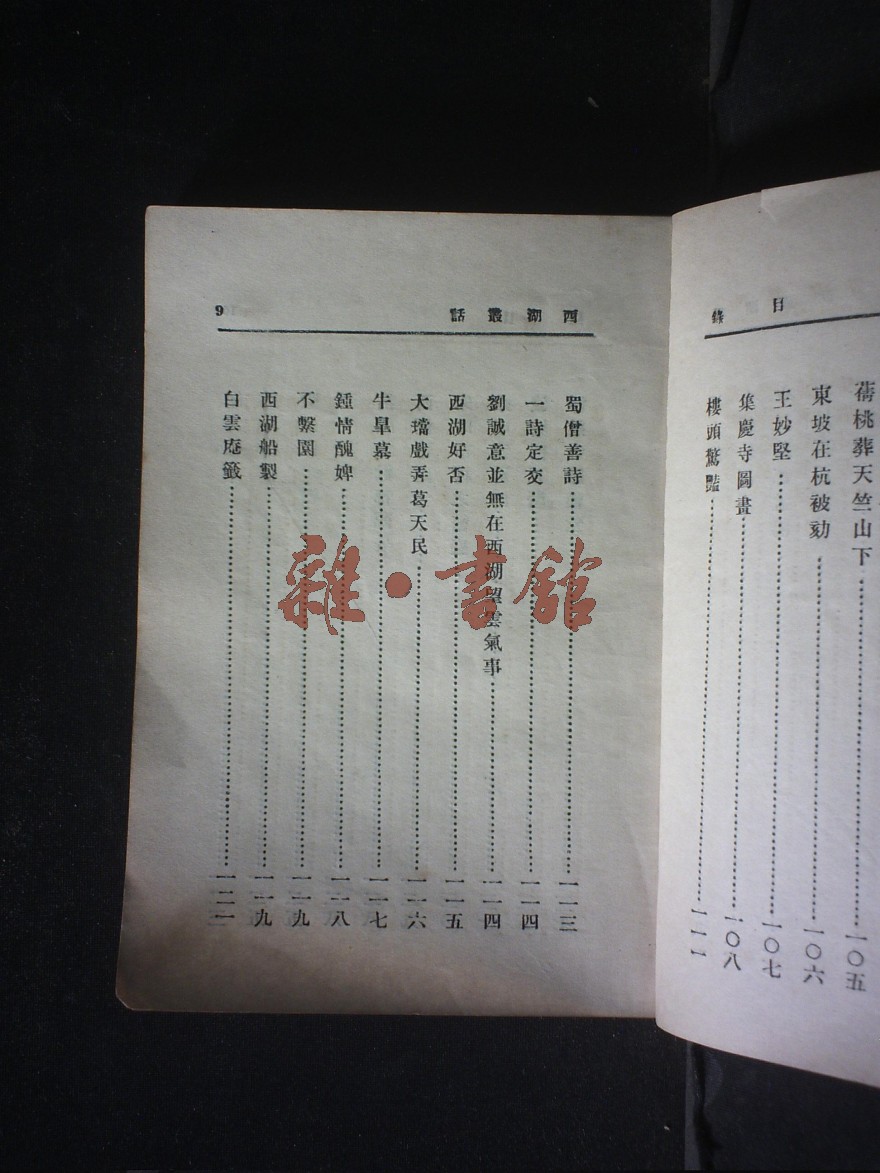 目錄
蒨桃葬天竺山下……一〇五
東坡在杭被劾……一〇六
王妙堅……一〇七
集慶寺圖畫……一〇八
樓頭驚豔……一一一
西湖叢話
9
蜀僧善詩……一一三
一詩定交……一一四
劉誠意並無在西湖望雲氣事……一一四
西湖好否……一一五
大璫戲弄葛天民……一一六
牛皐墓……一一七
鍾情醜婢……一一八
不繫園……一一九
西湖船製……一一九
白雲庵籤……一二一
雜·書館